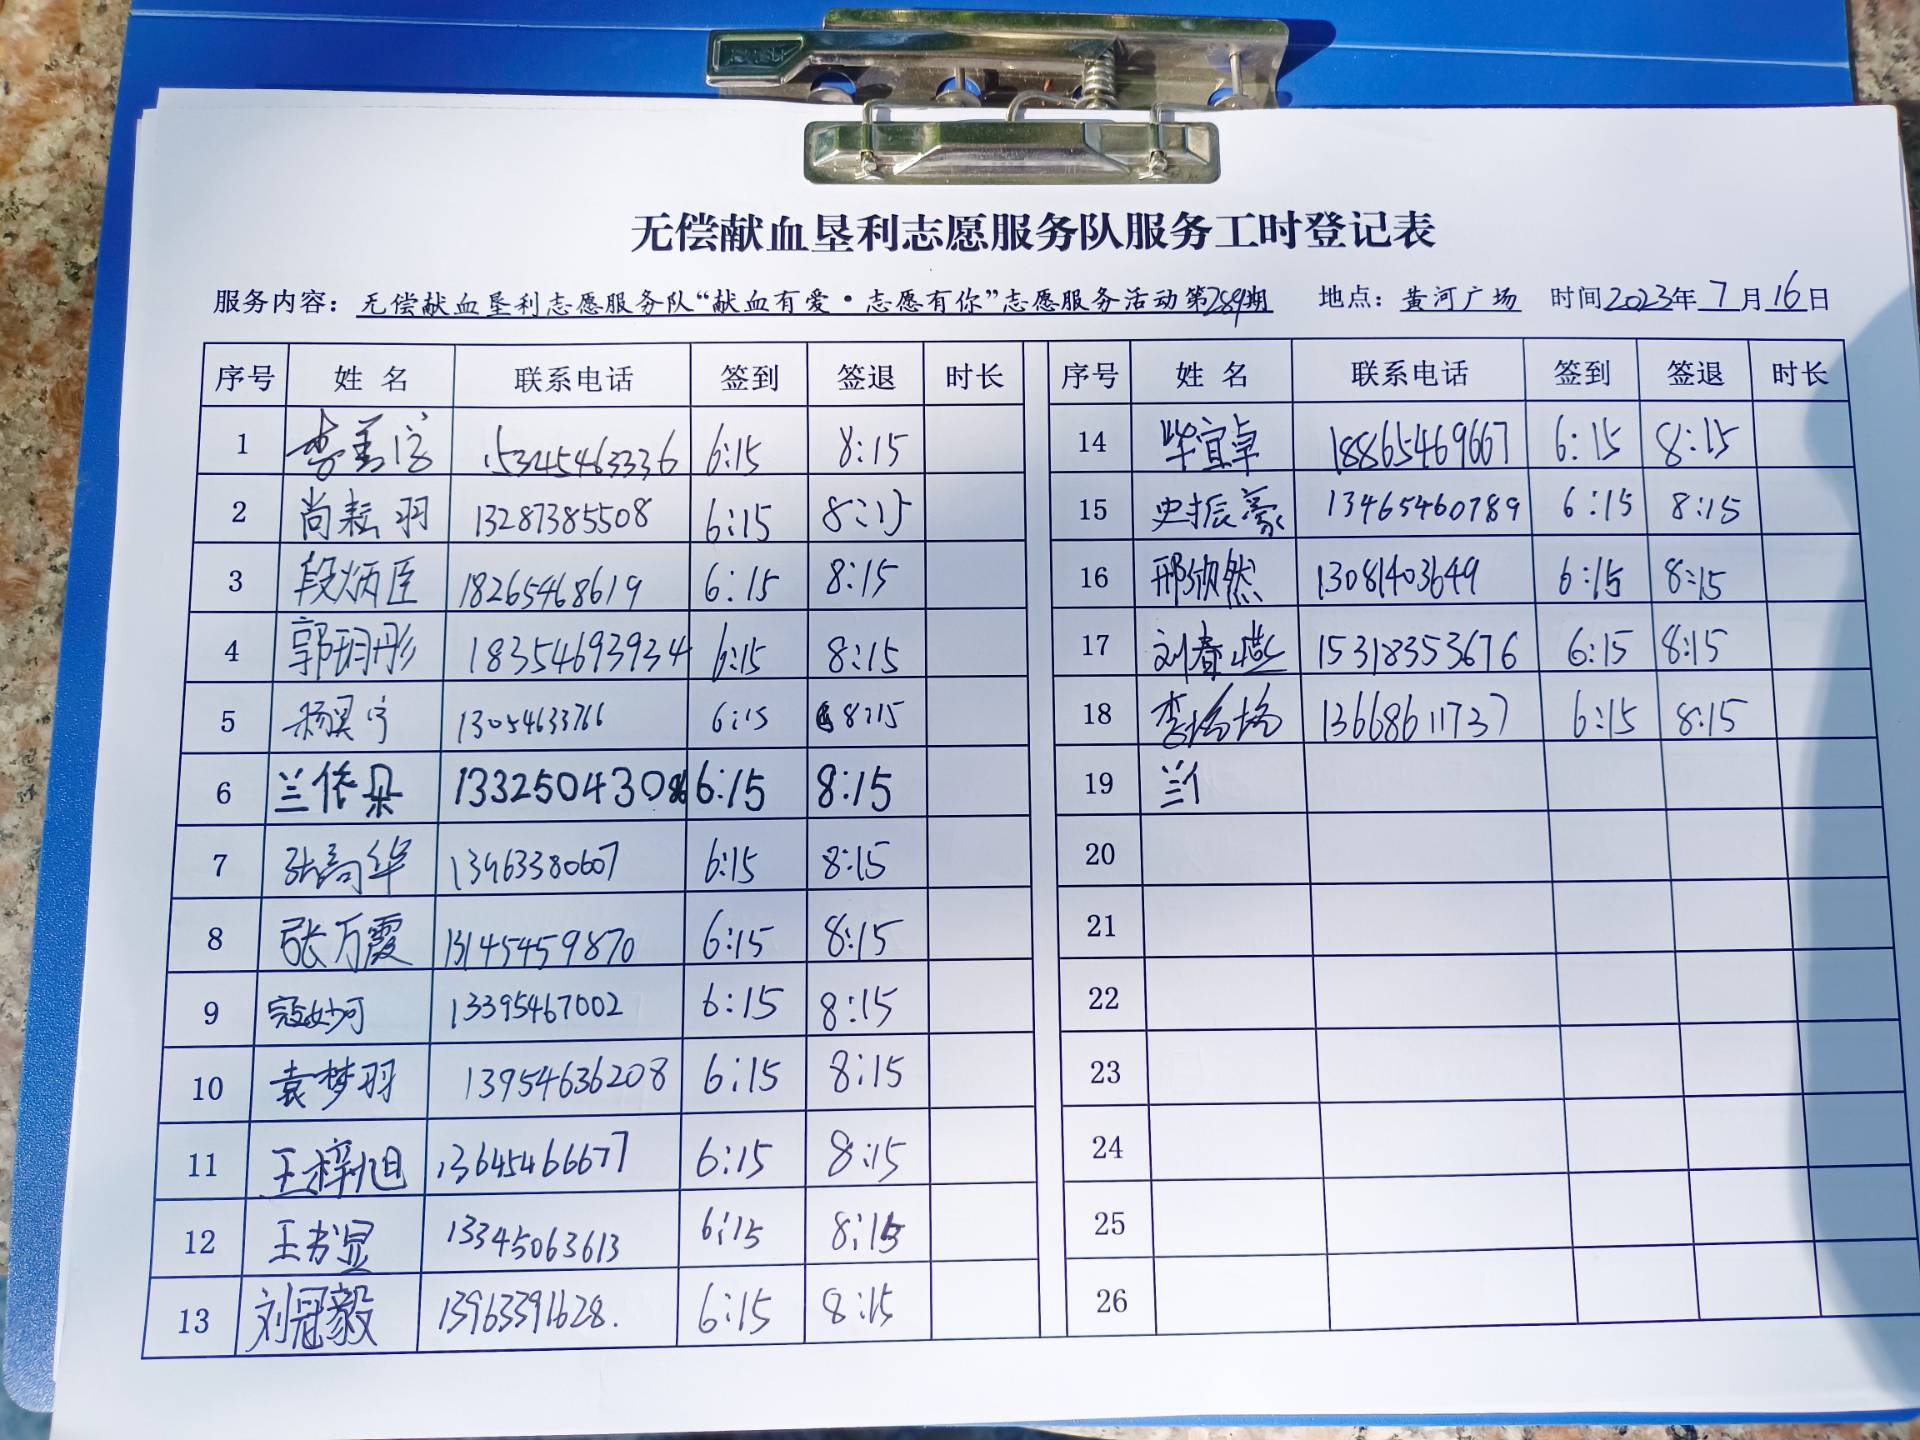 无偿献血垦利志愿服务队服务工时登记表
服务内容：无偿献血垦利志愿服务队“献血有爱·志愿有你”志愿服务活动第289期 地点：黄河广场 时间2023年7月16日
序号 姓名 联系电话 签到 签退 时长 序号 姓名 联系电话 签到 签退 时长
1 15345463336 6:15 8:15 14 毕宜卓 18865469667 6:15 8:15
2 尚耘羽 13287385508 6:15 8:15 15 史振豪 13465460789 6:15 8:15
3 段炳臣 18265468619 6:15 8:15 16 邢欣然 13081403649 6:15 8:15
4 郭玥彤 18354693934 6:15 8:15 17 刘春燕 15318353676 6:15 8:15
5 杨昊宁 13054633766 6:15 8:15 18 13668611737 6:15 8:15
6 兰依朵 6:15 8:15 19 兰亻
7 张高华 13963380607 6:15 8:15 20
8 张万霞 13145459870 6:15 8:15 21
9 寇妙可 13395467002 6:15 8:15 22
10 袁梦羽 13954636208 6:15 8:15 23
11 王梓旭 13645466677 6:15 8:15 24
12 王书显 13345063613 6:15 8:15 25
13 刘冠毅 13963391628. 6:15 8:15 26